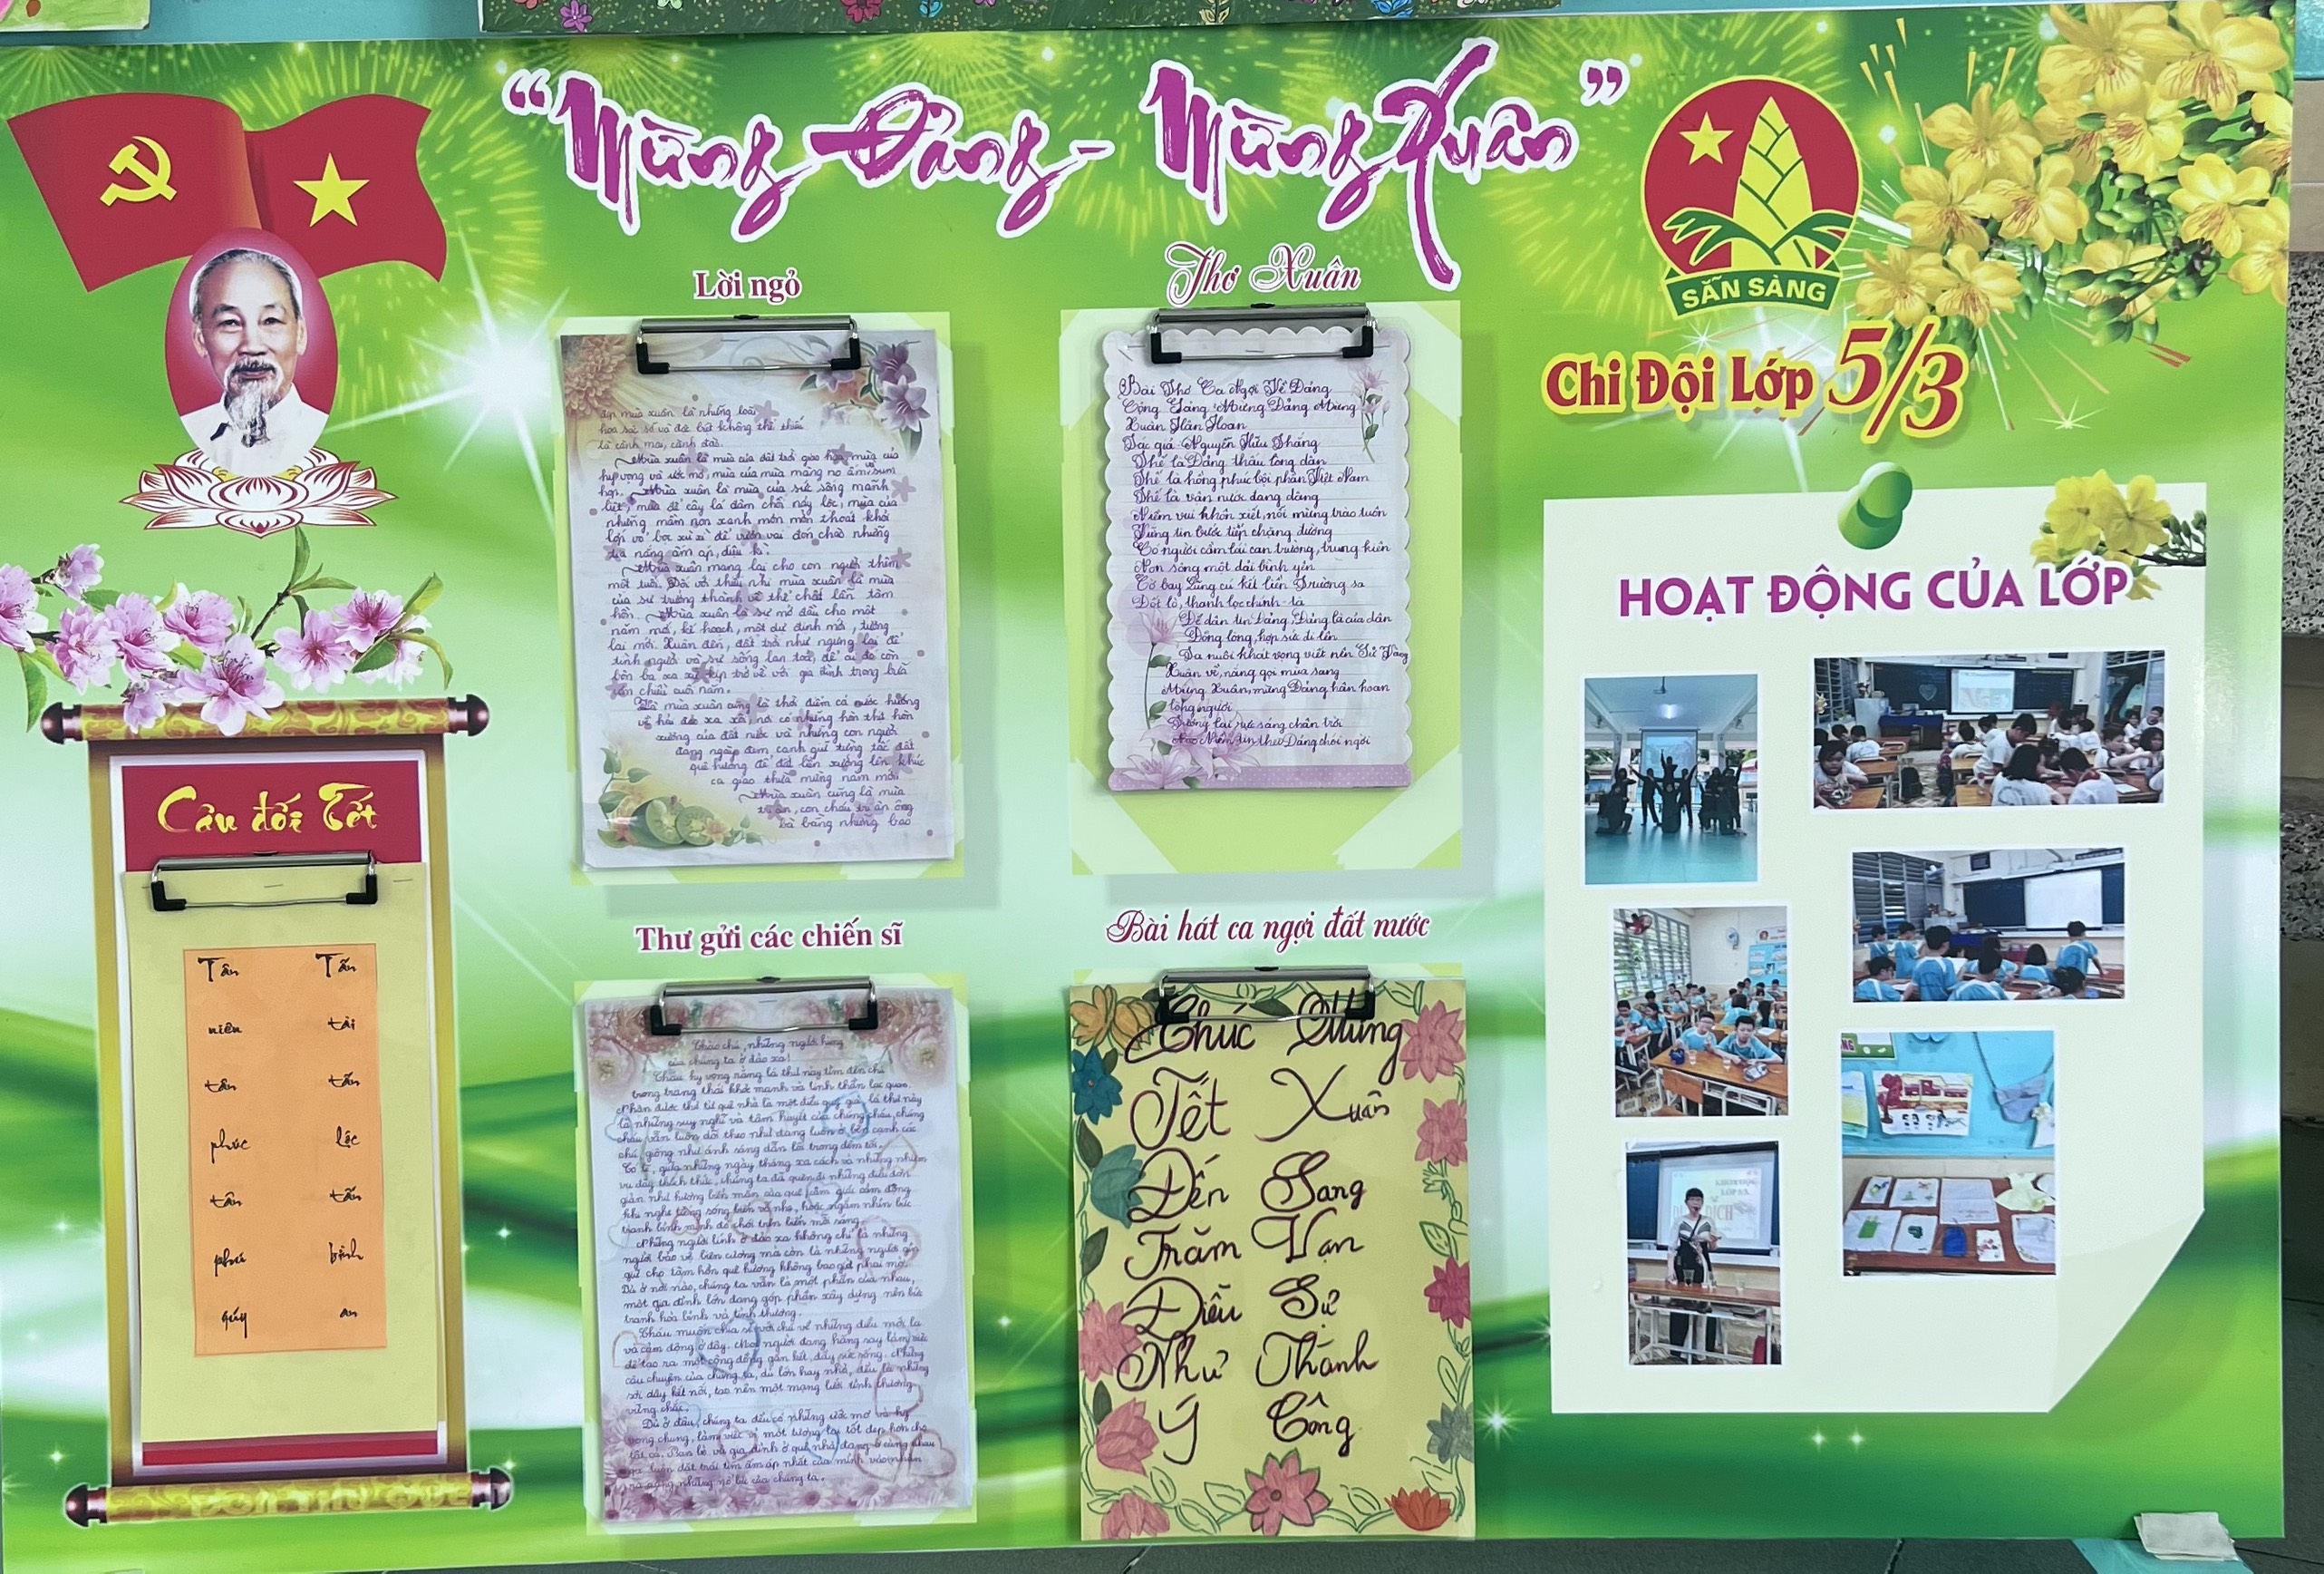 “Mừng Đảng - Mừng Xuân”
SẴN SÀNG
Chi Đội Lớp 5/3
Câu đối Tết
Tân Tấn
niên tài
tân tấn
phúc lộc
tân tấn
phú bình
quý an
Lời ngỏ
đẹp mùa xuân là những loài
hoa sặc sỡ và đặc biệt không thể thiếu
là cành mai, cành đào.
Mùa xuân là mùa của đất trời giao hòa mùa của
hy vọng và ước mơ, mùa của mùa màng no ấm sum
họp. Mùa xuân là mùa của sức sống mãnh
liệt, mùa để cây lá đâm chồi nảy lộc, mùa của
những mầm non xanh mơn mởn thoát khỏi
lớp vỏ bọc xù xì để vươn vai đón chào những
tia nắng ấm áp, diệu kì.
Mùa xuân mang lại cho con người thêm
một tuổi. Đối với thiếu nhi mùa xuân là mùa
của sự trưởng thành về thể chất lẫn tâm
hồn. Mùa xuân là sự mở đầu cho một
năm mới, kế hoạch, một dự định mới, tương
lai mới. Xuân đến, đất trời như ngừng lại để
tình người và sự sống lan toả, để ai đó còn
bôn ba xa xứ kịp trở về với gia đình trong bữa
cơm chiều cuối năm.
Và mùa xuân cũng là thời điểm cả nước hướng
về hải đảo xa xôi, nơi có những hòn thiê hòn
xương của đất nước và những con người
đang ngày đêm canh giữ từng tấc đất
quê hương để đất liền xướng lên khúc
ca giao thừa mừng năm mới
Mùa xuân cũng là mùa
tri ân, con cháu tri ân ông
bà bằng những bao
Thơ Xuân
Bài Thơ Ca Ngợi Về Đảng
Cộng Sảng Mừng Đảng Mừng
Xuân Hân Hoan
Tác giả Nguyễn Hữu Thắng
Thế là Đảng thấu lòng dân
Thế là hồng phúc bội phần Việt Nam
Thế là vận nước dang dâng
Niềm vui khôn xiết, nỗi mừng trào tuôn
Vững tin bước tiếp chặng đường
Có người cầm lái can trường, trung kiên
Non sông một dải bình yên
Cờ bay Lũng cú kết liền Trường sa
Đốt lò, thanh lọc chính - tà
Để dân tin Đảng, Đảng là của dân
Đồng lòng, hợp sức đi lên
Ta nuôi khát vọng viết nên Sử Vàng
Xuân về, nắng gọi mùa sang
Mừng Xuân, mừng Đảng hân hoan
lòng người
Tương lai rực sáng chân trời
Trao Niềm tin theo Đảng chói ngời
Thư gửi các chiến sĩ
Chào chú, những người hùng
của chúng ta ở đảo xa!
Cháu hy vọng rằng lá thư này tìm đến chú
trong trạng thái khỏe mạnh và tinh thần lạc quan.
Nhận được thư từ quê nhà là một điều quý giá, lá thư này
là những suy nghĩ và tâm huyết của chúng cháu, chúng
cháu vẫn luôn dõi theo như đang luôn ở bên cạnh các
chú, giống như ánh sáng dẫn lối trong đêm tối.
Có lẽ, qua những ngày tháng xa cách và những nhiệm
vụ đầy thách thức, chúng ta đã quên đi những điều đơn
giản như hương biển mặn của quê, cảm giác cảm động
khi nghe tiếng sóng biển vỗ nhẹ, hoặc ngắm nhìn bức
tranh bình minh đỏ chói trên biển mỗi sáng.
Những người lính ở đảo xa không chỉ là những
người bảo vệ biên cương mà còn là những người gìn
giữ cho tâm hồn quê hương không bao giờ phai mờ.
Dù ở nơi nào, chúng ta vẫn là một phần của nhau,
một gia đình lớn đang góp phần xây dựng nên bức
tranh hòa bình và tình thương.
Cháu muốn chia sẻ với chú về những điều mới lạ
và cảm động ở đây. Mọi người đang hăng say làm việc
để tạo ra một cộng đồng gắn kết, đầy sức sống. Những
câu chuyện của chúng ta, dù lớn hay nhỏ, đều là những
sợi dây kết nối, tạo nên một mạng lưới tình thương
vững chắc.
Dù ở đâu, chúng ta đều có những ước mơ và hy
vọng chung, làm việc vì một tương lai tốt đẹp hơn cho
tất cả. Bạn bè và gia đình ở quê nhà đang ở cùng cháu
và luôn đặt trái tim ấm áp nhất của mình vào nhận
và những nỗ lực của chúng ta.
Bài hát ca ngợi đất nước
Chúc Mừng
Tết Xuân
Đến Sang
Trăm Vạn
Điều Sự
Như Thành
Ý Công
HOẠT ĐỘNG CỦA LỚP